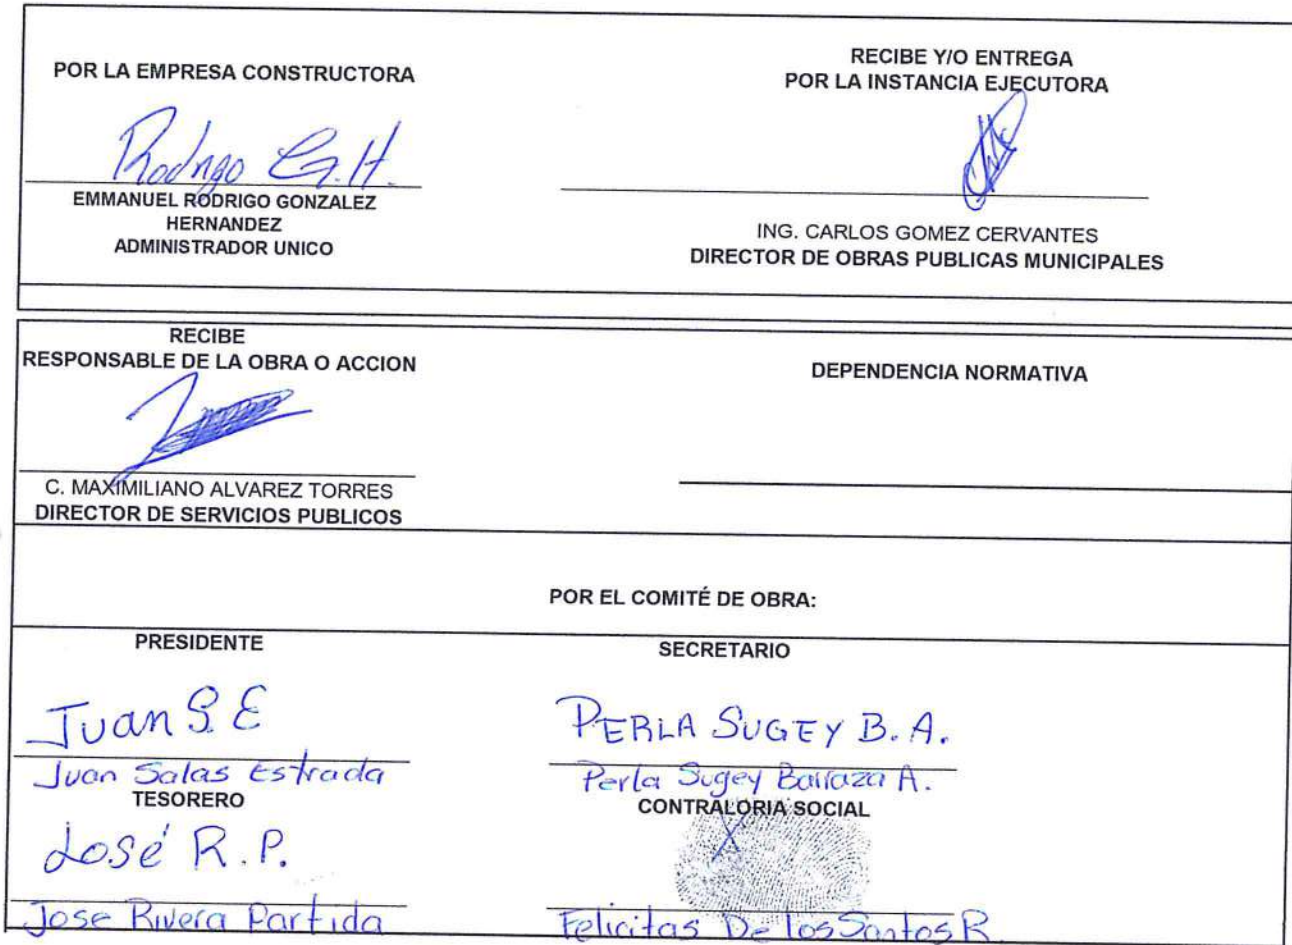 POR LA EMPRESA CONSTRUCTORA
Rodrigo G.H.
EMMANUEL RODRIGO GONZALEZ
HERNANDEZ
ADMINISTRADOR UNICO
RECIBE Y/O ENTREGA
POR LA INSTANCIA EJECUTORA
ING. CARLOS GOMEZ CERVANTES
DIRECTOR DE OBRAS PUBLICAS MUNICIPALES
RECIBE
RESPONSABLE DE LA OBRA O ACCION
C. MAXIMILIANO ALVAREZ TORRES
DIRECTOR DE SERVICIOS PUBLICOS
DEPENDENCIA NORMATIVA
POR EL COMITÉ DE OBRA:
PRESIDENTE
Juan S.E
Juan Salas Estrada
SECRETARIO
PERLA SUGEY B.A.
Perla Sugey Barraza A.
TESORERO
José R.P.
Jose Rivera Partida
CONTRALORIA SOCIAL
X
Felicitas De los Santos R.